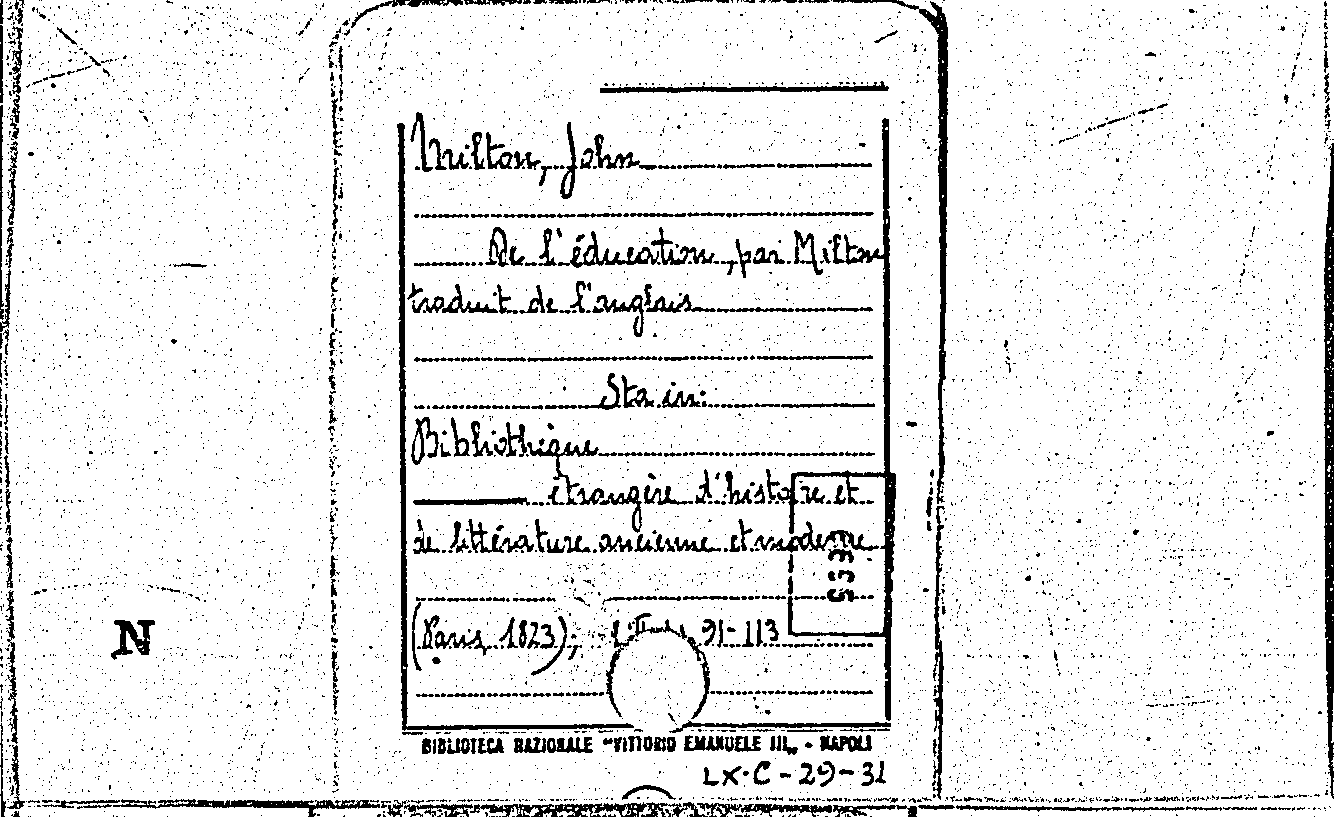 Milton, John
De l'éducation, par Milton
traduit de l'anglais
Sta in:
Bibliothèque
étrangère d'histoire et
de littérature ancienne et moderne
(Paris, 1823); 91-113
N
BIBLIOTECA NAZIONALE "VITTORIO EMANUELE III„ - NAPOLI
LX.C-29-31